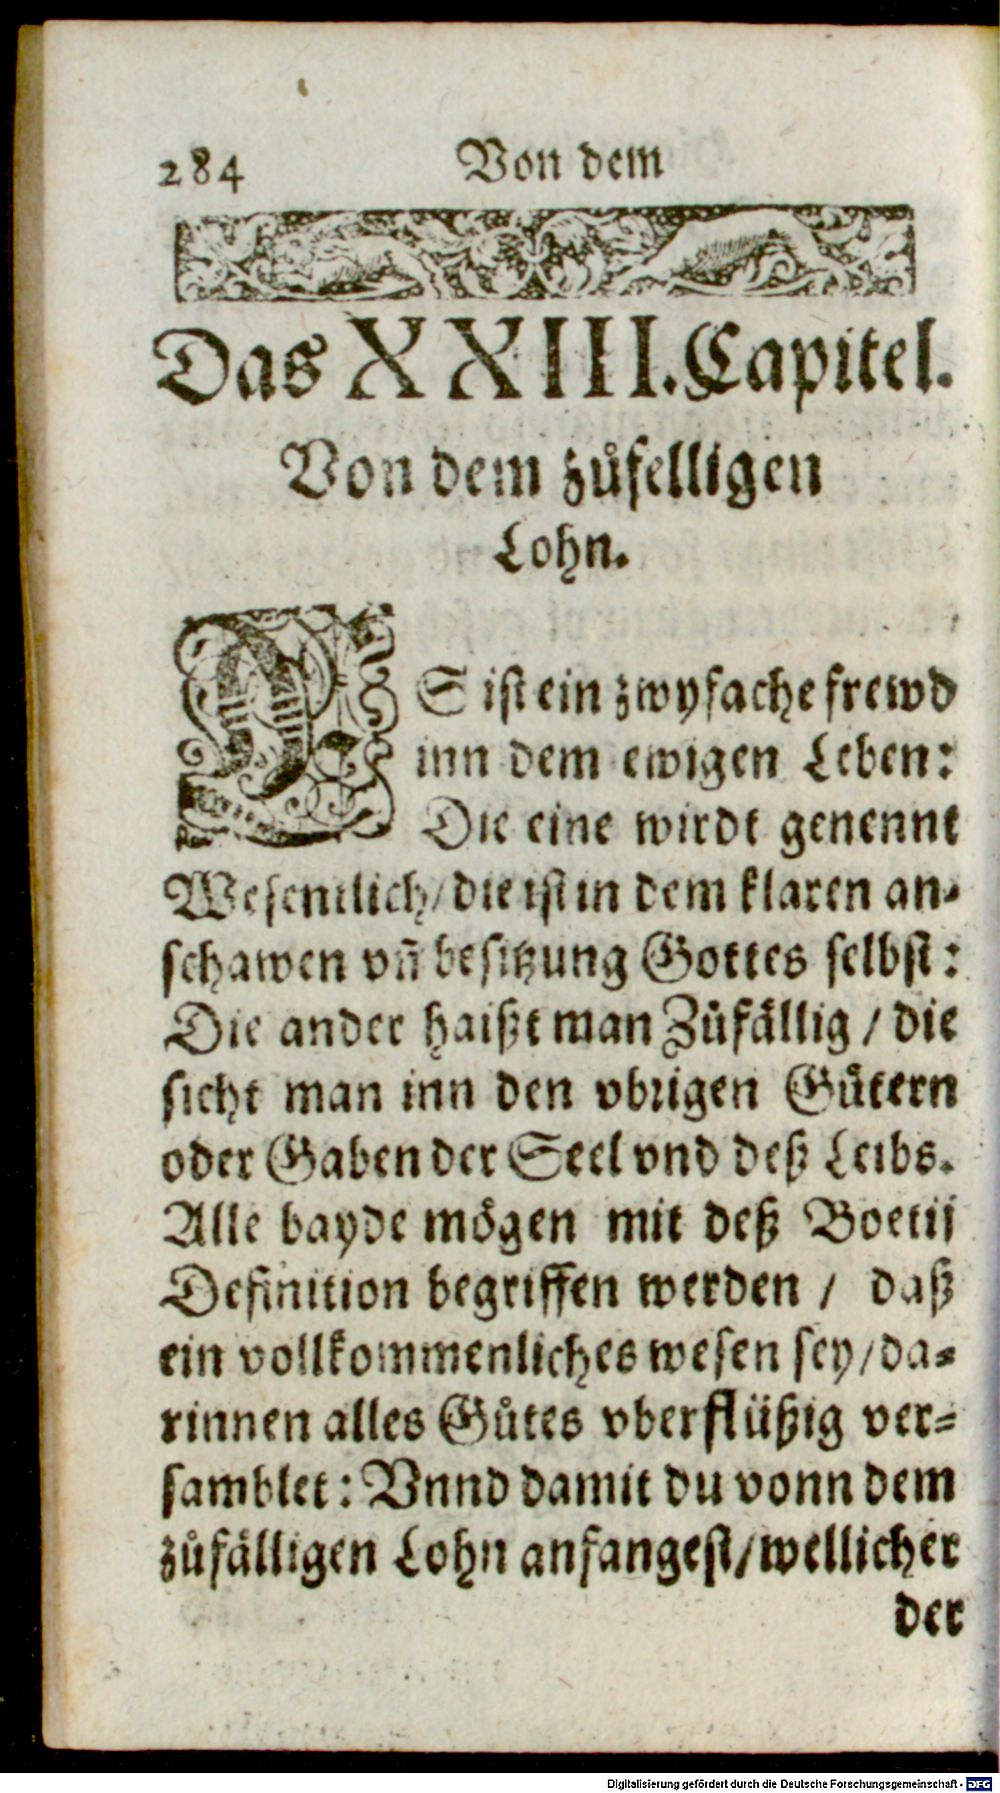 284 Von dem
Das XXIII. Capitel.
Von dem zůfelligen
Lohn.
ES ist ein zwyfache frewd
inn dem ewigen Leben:
Die eine wirdt genennt
Wesentlich / die ist in dem klaren an-
schawen vñ besitzung Gottes selbst:
Die ander haißt man Zůfällig / die
sicht man inn den vbrigen Gůtern
oder Gaben der Seel vnd deß Leibs.
Alle bayde mögen mit deß Boetij
Definition begriffen werden / daß
ein vollkommenliches wesen sey / da-
rinnen alles Gůtes vberflüßig ver-
samblet: Vnnd damit du vonn dem
zůfälligen Lohn anfangest / wellicher
der
Digitalisierung gefördert durch die Deutsche Forschungsgemeinschaft - DFG